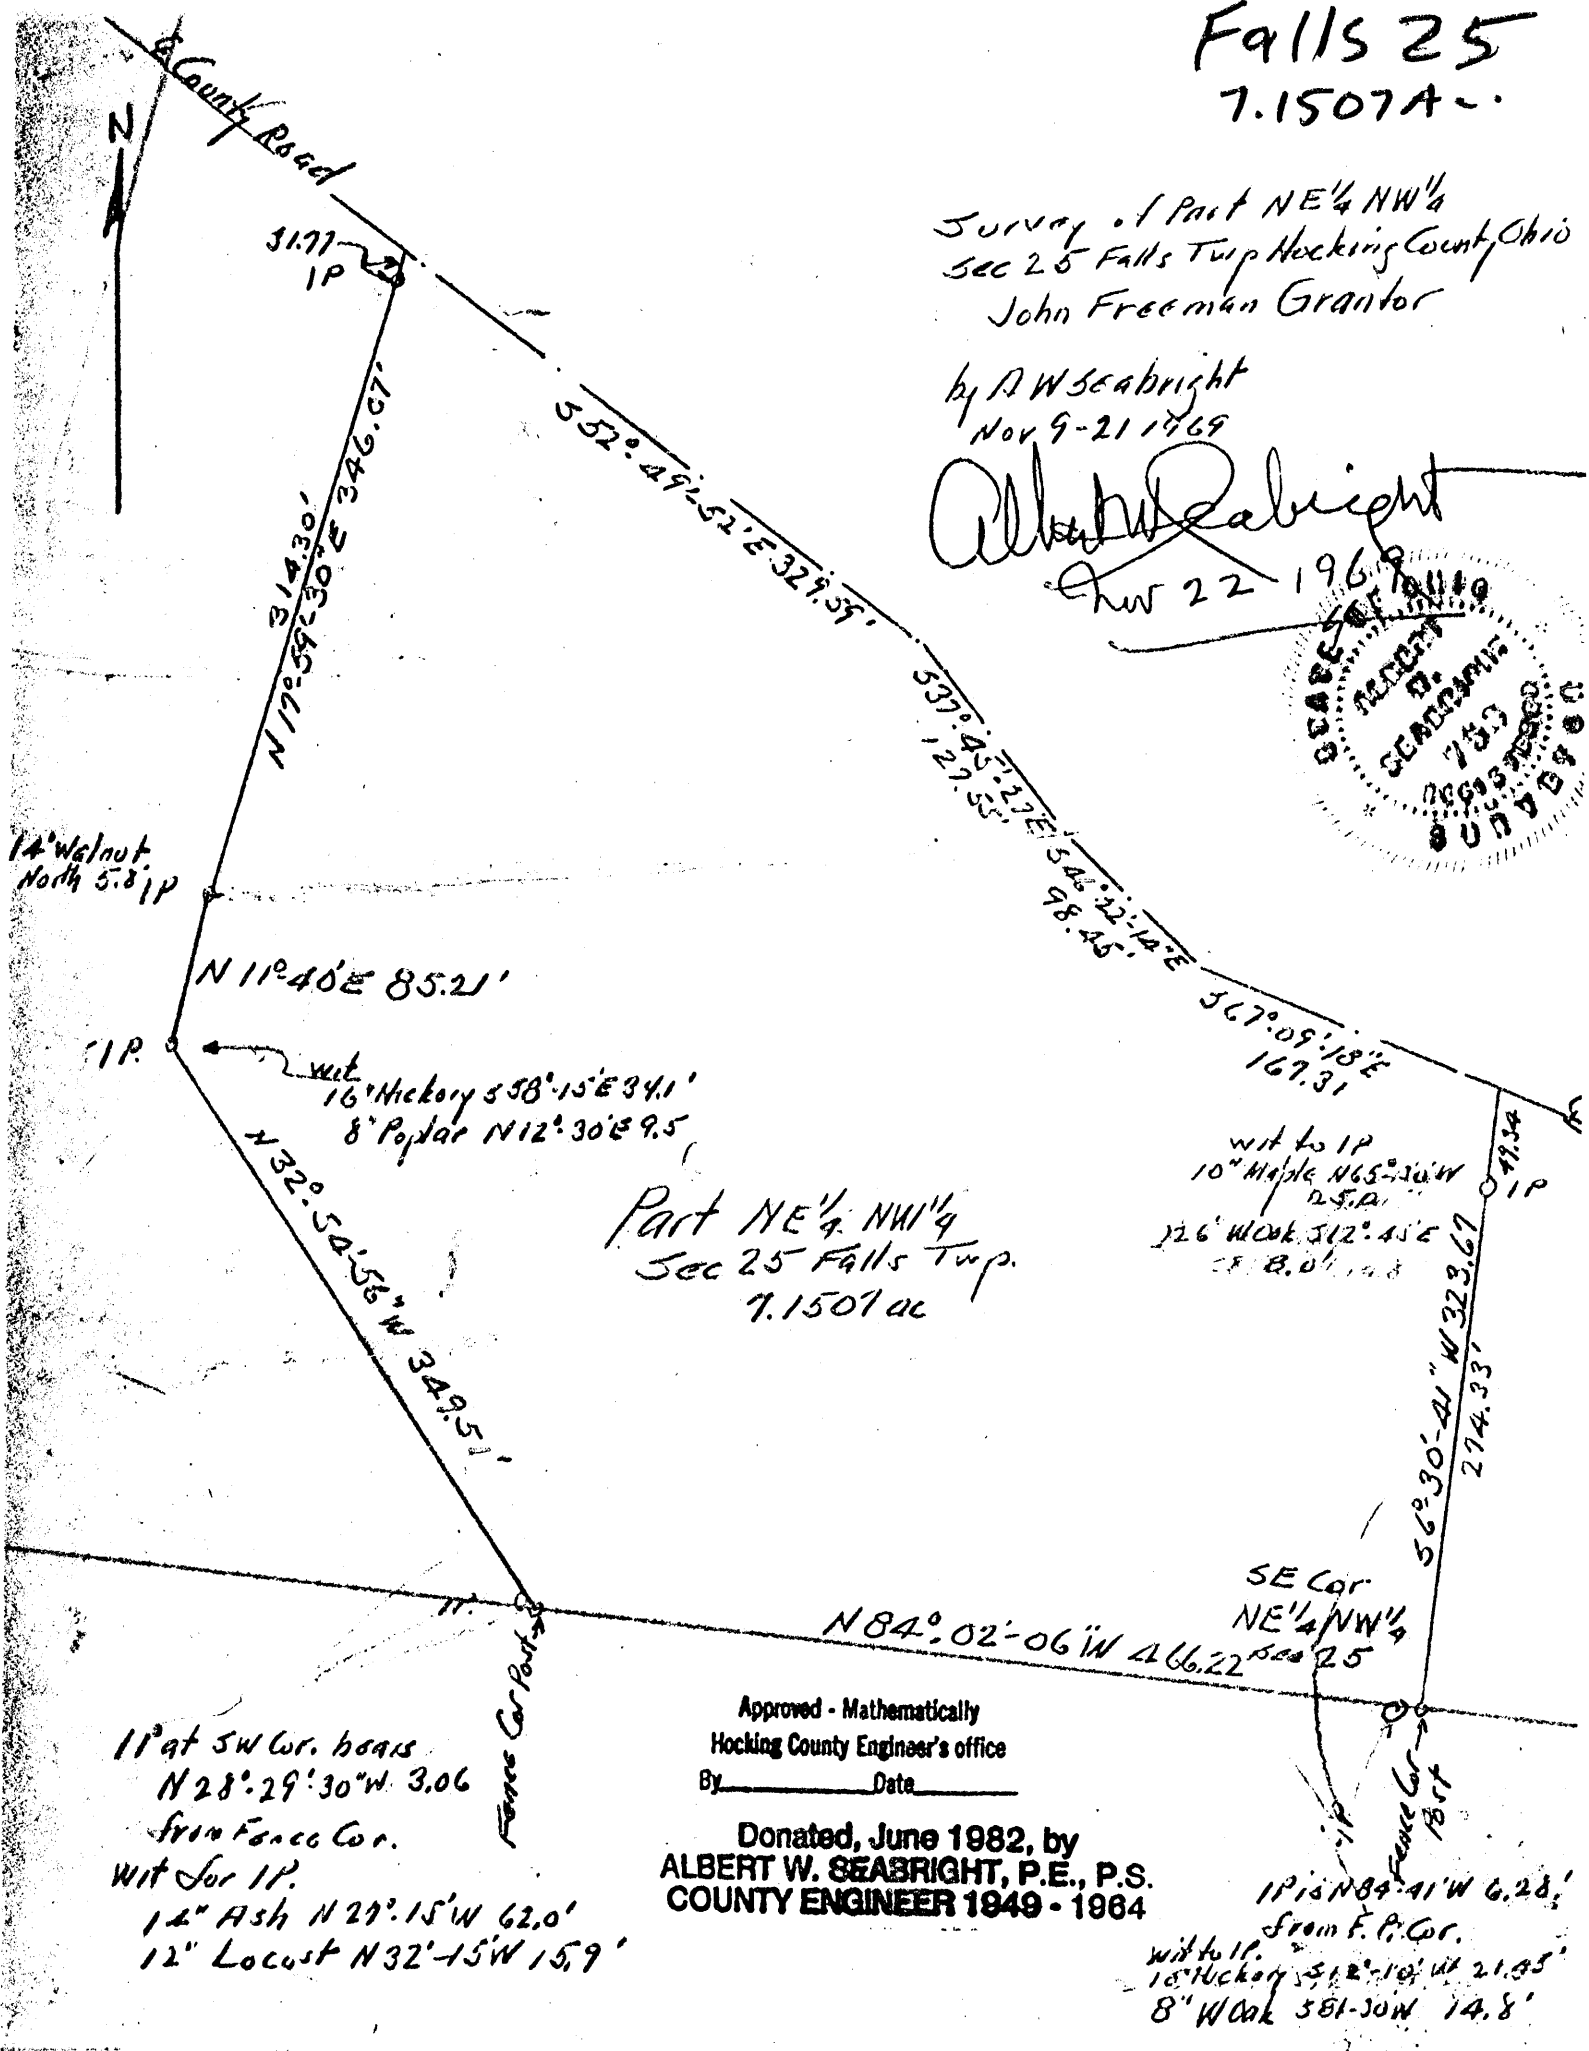 Falls 25
7.1507A-.
Survey of Part NE 1/4 NW 1/4
Sec 25 Falls Twp Hocking County, Ohio
John Freeman Grantor
by A W Seabright
Nov 9-21 1969
Albert W Seabright
Nov 22 1969
STATE OF OHIO
ALBERT
W.
SEABRIGHT
753
REGISTERED
SURVEYOR
N
℄ County Road
31.77
IP
N 17°-59'-30"E 346.07'
314.30'
S 52°-49'-52"E 329.59'
S37°-45'-27"E
127.55'
S46°-22'-14"E
98.45'
S67°-09'-18"E
167.31
14" Walnut
North 5.8'
IP
N 11°-40'E 85.21'
IP.
wit
16" Hickory S58°-15'E 34.1'
8" Poplar N12°-30'E 9.5
N 32°-54'-56"W 349.51'
Part NE 1/4 NW 1/4
Sec 25 Falls Twp.
7.1507 ac
wit to IP
10" Maple N65°-30'W
W Oak S12°-45'E
8.0'
49.34
IP
S6°-30'-41"W 323.67
274.33'
SE Cor
NE 1/4 NW 1/4
Sec 25
N 84°-02'-06"W 466.22
IP.
Fence Cor Post
Fence Cor
Post
IP
IP at SW Cor. bears
N 28°-29'-30"W 3.06
from Fence Cor.
Wit for IP.
Ash N 27°-15'W 62.0'
12" Locust N 32'-15'W 15.9'
Approved - Mathematically
Hocking County Engineer's office
By Date
Donated, June 1982, by
ALBERT W. SEABRIGHT, P.E., P.S.
COUNTY ENGINEER 1949 - 1964
IP is N84°-41'W 6.28'
from F.P. Cor.
wit to IP.
Hickory S12°-10'W 21.85'
8" W Oak S81-30W 14.8'